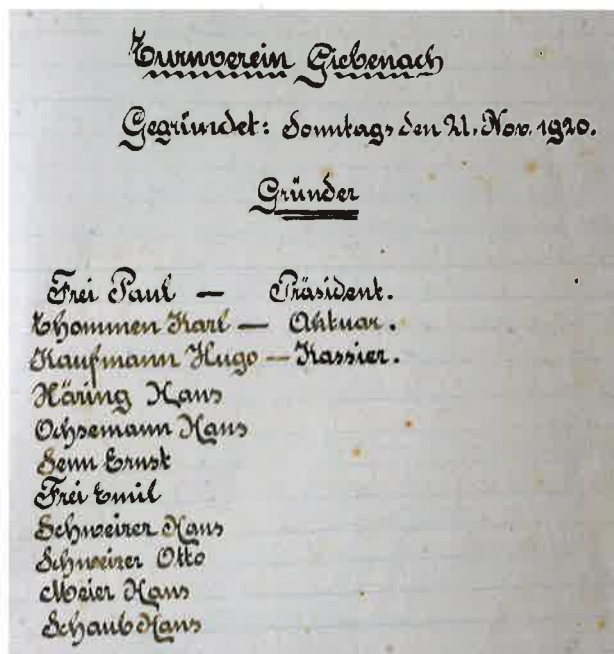 Turnverein Giebenach
Gegründet: Sonntags den 21. Nov. 1920.
Gründer
Frei Paul — Präsident.
Thommen Karl — Aktuar.
Kaufmann Hugo — Kassier.
Häring Hans
Ochsemann Hans
Senn Ernst
Frei Emil
Schweizer Hans
Schweizer Otto
Meier Hans
Schaub Hans